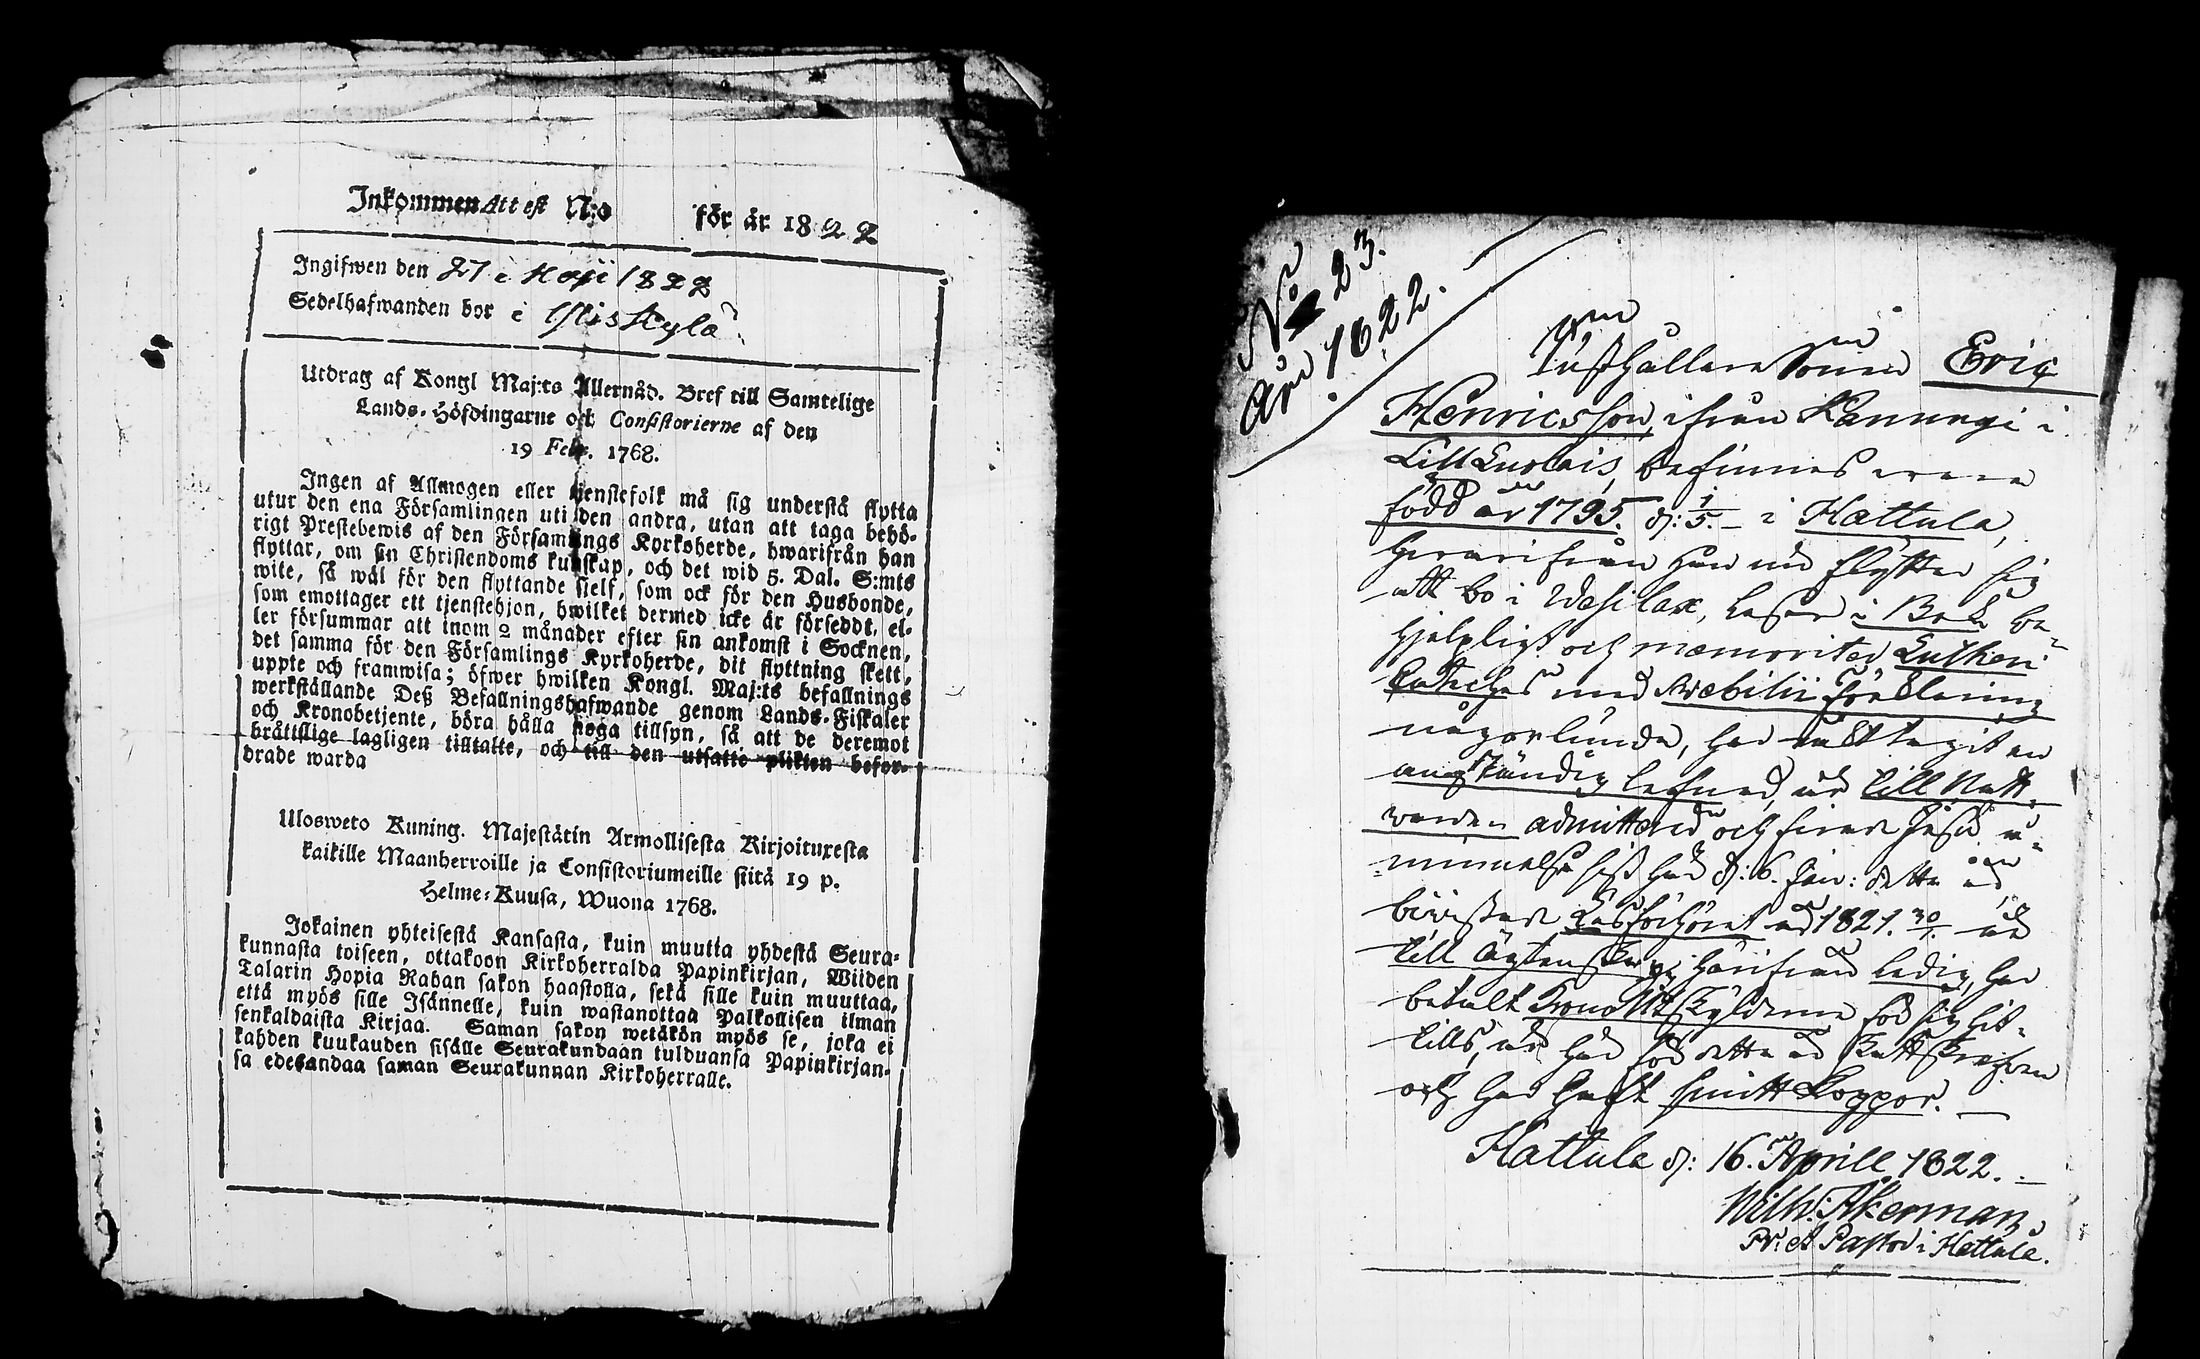 Inkommen Attest N:o för år 1822
Ingifwen den 27 Maji 1822
Sedelhafwanden bor i Yliskylä
Utdrag af Kongl Maj:ts Allernåd. Bref till Samtelige
Lands-Höfdingarne och Consistorierne af den
19 Febr. 1768.
Ingen af Allmogen eller tjenstefolk må sig understå flytta
utur den ena Församlingen uti den andra, utan att taga behö-
rigt Prestebewis af den Församlings Kyrkoherde, hwarifrån han
flyttar, om sin Christendoms kunskap, och det wid 5. Dal. S:mts
wite, så wäl för den flyttande sjelf, som ock för den Husbonde,
som emottager ett tjenstehjon, hwilket dermed icke är försedt, el-
ler försummar att inom 2 månader efter sin ankomst i Socknen,
det samma för den Församlings Kyrkoherde, dit flyttning skett,
uppte och framwisa; öfwer hwilken Kongl. Maj:ts befallnings
werkställande Deß Befallningshafwande genom Lands-Fiskaler
och Kronobetjente, böra hålla noga tillsyn, så att de deremot
bråttslige lagligen tilltalte, och till den utsatte plikten befor-
drade warda
Ulosweto Kuning. Majestätin Armollisesta Kirjoituxesta
kaikille Maanherroille ja Consistoriumeille siitä 19 p.
Helme-Kuusa, Wuona 1768.
Jokainen yhteisestä Kansasta, kuin muutta yhdestä Seura-
kunnasta toiseen, ottakoon Kirkoherralda Papinkirjan, Wiiden
Talarin Hopia Rahan sakon haastolla, sekä sille kuin muuttaa,
että myös sille Isännelle, kuin wastanottaa Palkollisen ilman
senkaldaista Kirjaa. Saman sakon wetäkön myös se, joka ei
kahden kuukauden sisälle Seurakundaan tulduansa Papinkirjan-
sa edesandaa saman Seurakunnan Kirkoherralle.
No 23.
År 1822.
Rusthållare Sonen Eric
Henricsson, ifrån Kannungi i
Lill Luolais, befinnes vara
född år 1795. d: 1/5. i Hattula,
hvarifrån han nu flyttar sig
att bo i Wesilax, läser i Bok be-
hjelpligt och memoriter Lutheri
Cateches med Swebilii Förklaring
någorlunda, har
anständig lefnad, är till Natt-
warden admitterad och firade Jesu å-
minnelse sist här d: 6. Jan: detta år
bevistade Läsförhöret år 1821. är
till Ägtenskap härifrån ledig, har
betalt Krono Utskylderne för sig hit-
tills, är här för detta år Skattskrefven
och har haft Smitt Koppor.
Hattula d: 16. Aprill 1822.
Wilh: Åkerman,
Pr: et Pastor i Hattula.